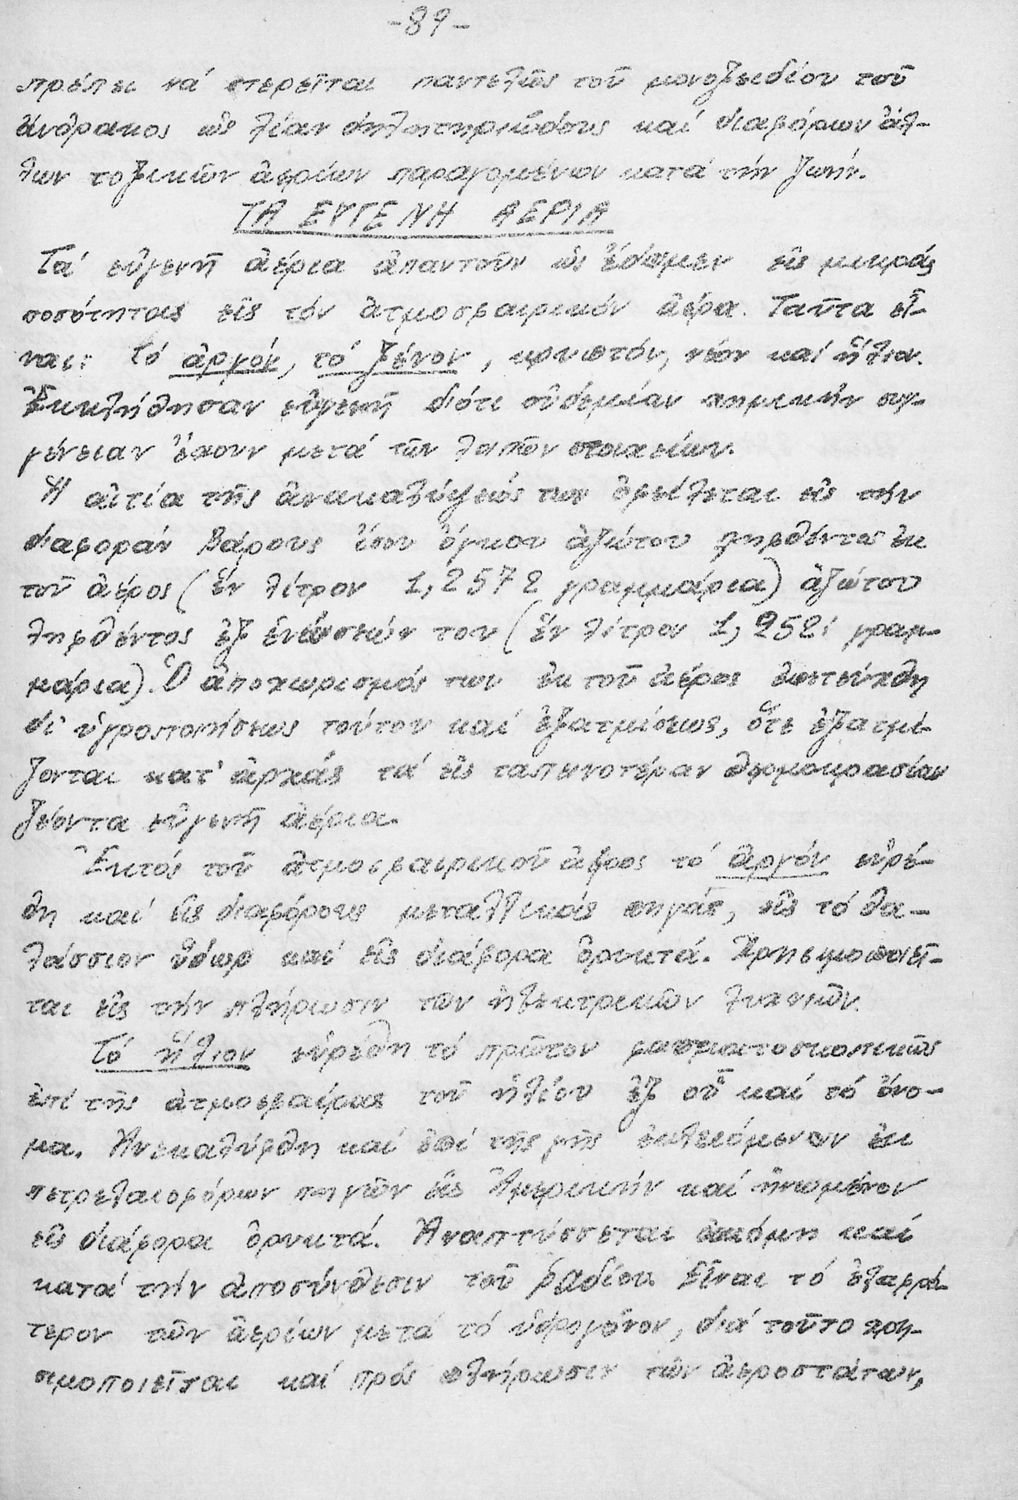 -89-
πρέπει νά στερεῖται παντελῶς τοῦ μονοξειδίου τοῦ
ἄνθρακος ὡς λίαν δηλητηριώδους καί διαφόρων ἄλ-
λων τοξικῶν ἀερίων παραγομένων κατά τήν ζωήν.
ΤΑ ΕΥΓΕΝΗ ΑΕΡΙΑ
Τά εὐγενῆ ἀέρια ἀπαντοῦν ὡς εἴδομεν εἰς μικράς
ποσότητας εἰς τόν ἀτμοσφαιρικόν ἀέρα. Ταῦτα εἶ-
ναι: τό ἀργόν, τό ξένον, κρυπτόν, νέον καί ἥλιον.
Ἐκκλήθησαν εὐγενῆ διότι οὐδεμίαν χημικήν συγ-
γένειαν ἔχουν μετά τῶν λοιπῶν στοιχείων.
Ἡ αἰτία τῆς ἀνακαλύψεώς των ὀφείλεται εἰς τήν
διαφοράν βάρους ἴσου ὄγκου ἀζώτου ληφθέντος ἐκ
τοῦ ἀέρος (ἕν λίτρον 1,2572 γραμμάρια) ἀζώτου
ληφθέντος ἐξ ἑνώσεών του (ἕν λίτρον 1,252 γραμ-
μάρια). Ὁ ἀποχωρισμός των ἐκ τοῦ ἀέρος ἐπετεύχθη
δι' ὑγροποιήσεως τούτου καί ἐξατμίσεως, ὅτε ἐξατμί-
ζονται κατ' ἀρχάς τά εἰς ταπεινοτέραν θερμοκρασίαν
ζέοντα εὐγενῆ ἀέρια.
Ἐκτός τοῦ ἀτμοσφαιρικοῦ ἀέρος τό ἀργόν εὑρέ-
θη καί εἰς διαφόρους μεταλλικάς πηγάς, εἰς τό θα-
λάσσιον ὕδωρ καί εἰς διάφορα ὀρυκτά. Χρησιμοποιεῖ-
ται εἰς τήν πλήρωσιν τῶν ἠλεκτρικῶν λυχνιῶν.
Τό ἥλιον εὑρέθη τό πρῶτον φασματοσκοπικῶς
ἐπί τῆς ἀτμοσφαίρας τοῦ ἡλίου ἐξ οὗ καί τό ὄνο-
μα. Ἀνεκαλύφθη καί ἐπί τῆς γῆς ἐκλειόμενον ἐκ
πετρελαιοφόρων πηγῶν εἰς Ἀμερικήν καί ἡνωμένον
εἰς διάφορα ὀρυκτά. Ἀναπτύσσεται ἀκόμη καί
κατά τήν ἀποσύνθεσιν τοῦ ραδίου. Εἶναι τό ἐλαφρό-
τερον τῶν ἀερίων μετά τό ὑδρογόνον, διά τοῦτο χρη-
σιμοποιεῖται καί πρός πλήρωσιν τῶν ἀεροστάτων,